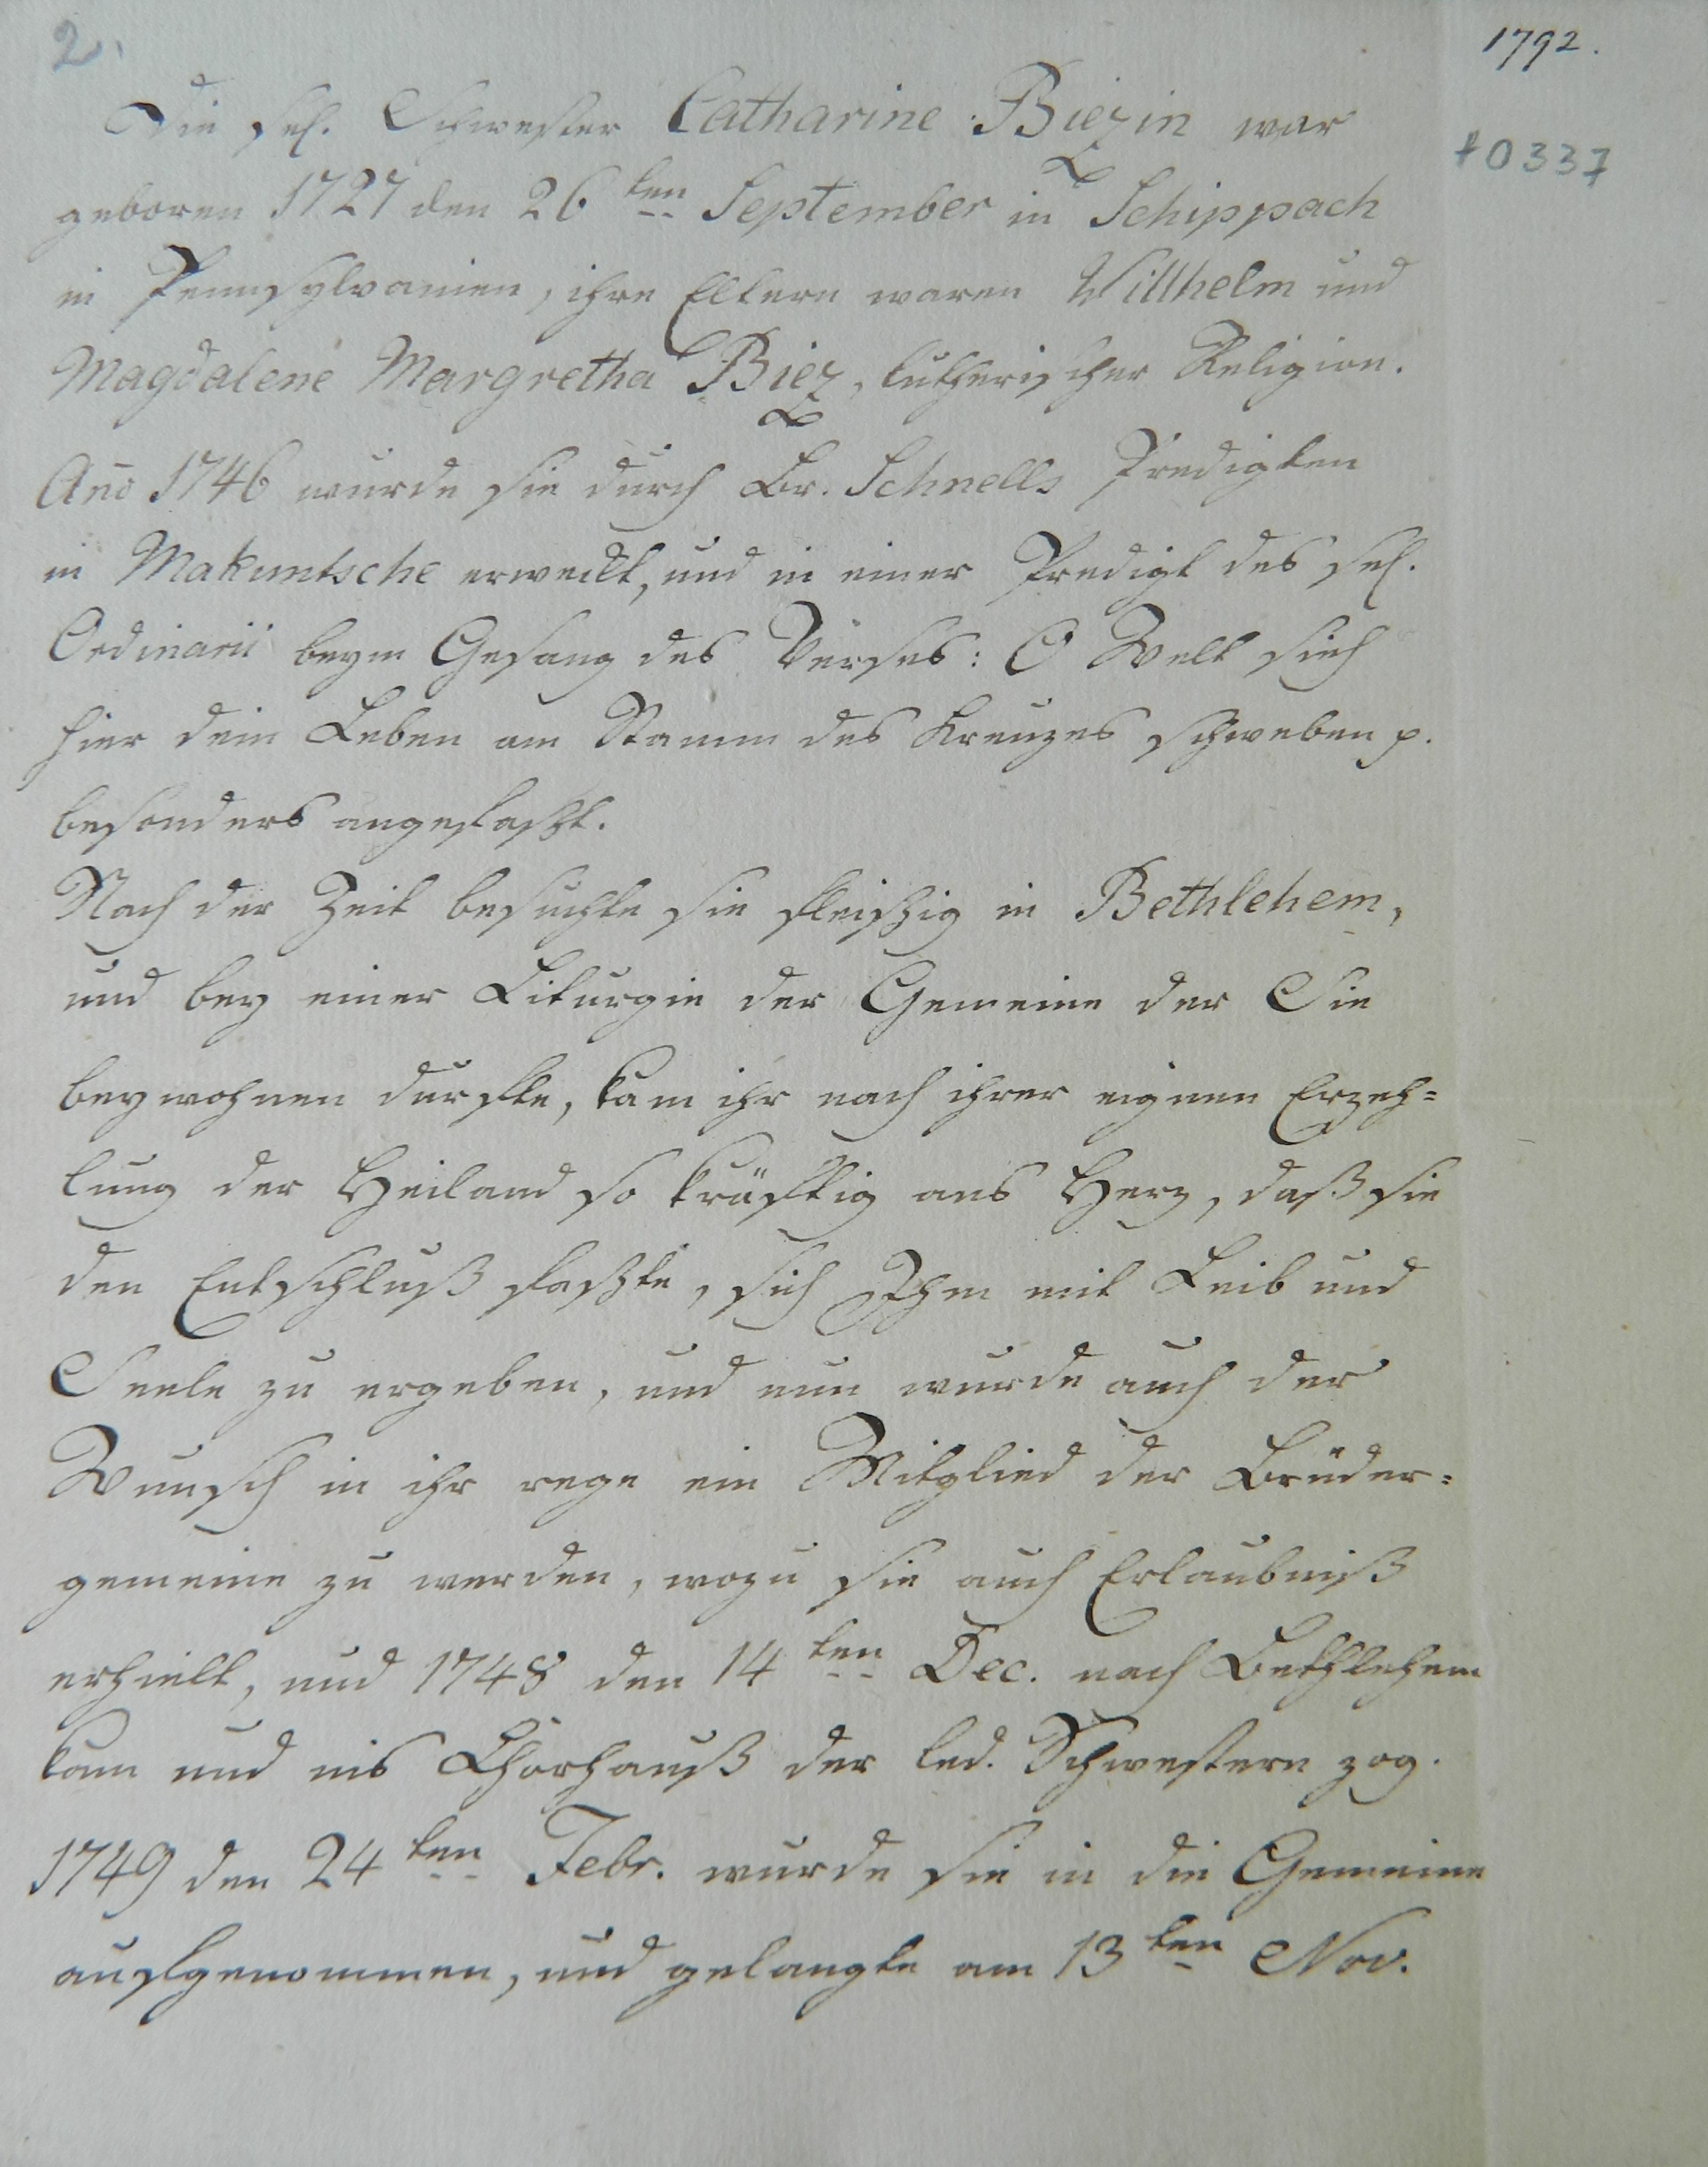 2.
1792.
Die sel. Schwester Catharine Biezin war
f0337
geboren 1727 den 26ten September in Schippach
in Pennsylvanien, ihre Eltern waren Willhelm und
Magdalene Margretha Biez, lutherischer Religion.
Año 1746 wurde sie durch Br. Schnells Predigten
in Makuntsche erweckt, und in einer Predigt des sel.
Ordinarii beym Gesang des Verses: O Welt sieh
hier dein Leben am Stamm des Kreuzes schweben p.
besonders angefaßt.
Nach der Zeit besuchte sie fleißig in Bethlehem,
und bey einer Liturgie der Gemeine der Sie
beywohnen durfte, kam ihr nach ihrer eignen Erzeh=
lung der Heiland so kräftig ans Herz, daß sie
den Entschluß faßte, sich Ihm mit Leib und
Seele zu ergeben, und nun wurde auch der
Wunsch in ihr rege ein Mitglied der Brüder=
gemeine zu werden, wozu sie auch Erlaubniß
erhielt, und 1748 den 14ten Dec. nach Bethlehem
kam und ins Chorhauß der led. Schwestern zog.
1749 den 24ten Febr. wurde sie in die Gemeine
aufgenommen, und gelangte am 13ten Nov.